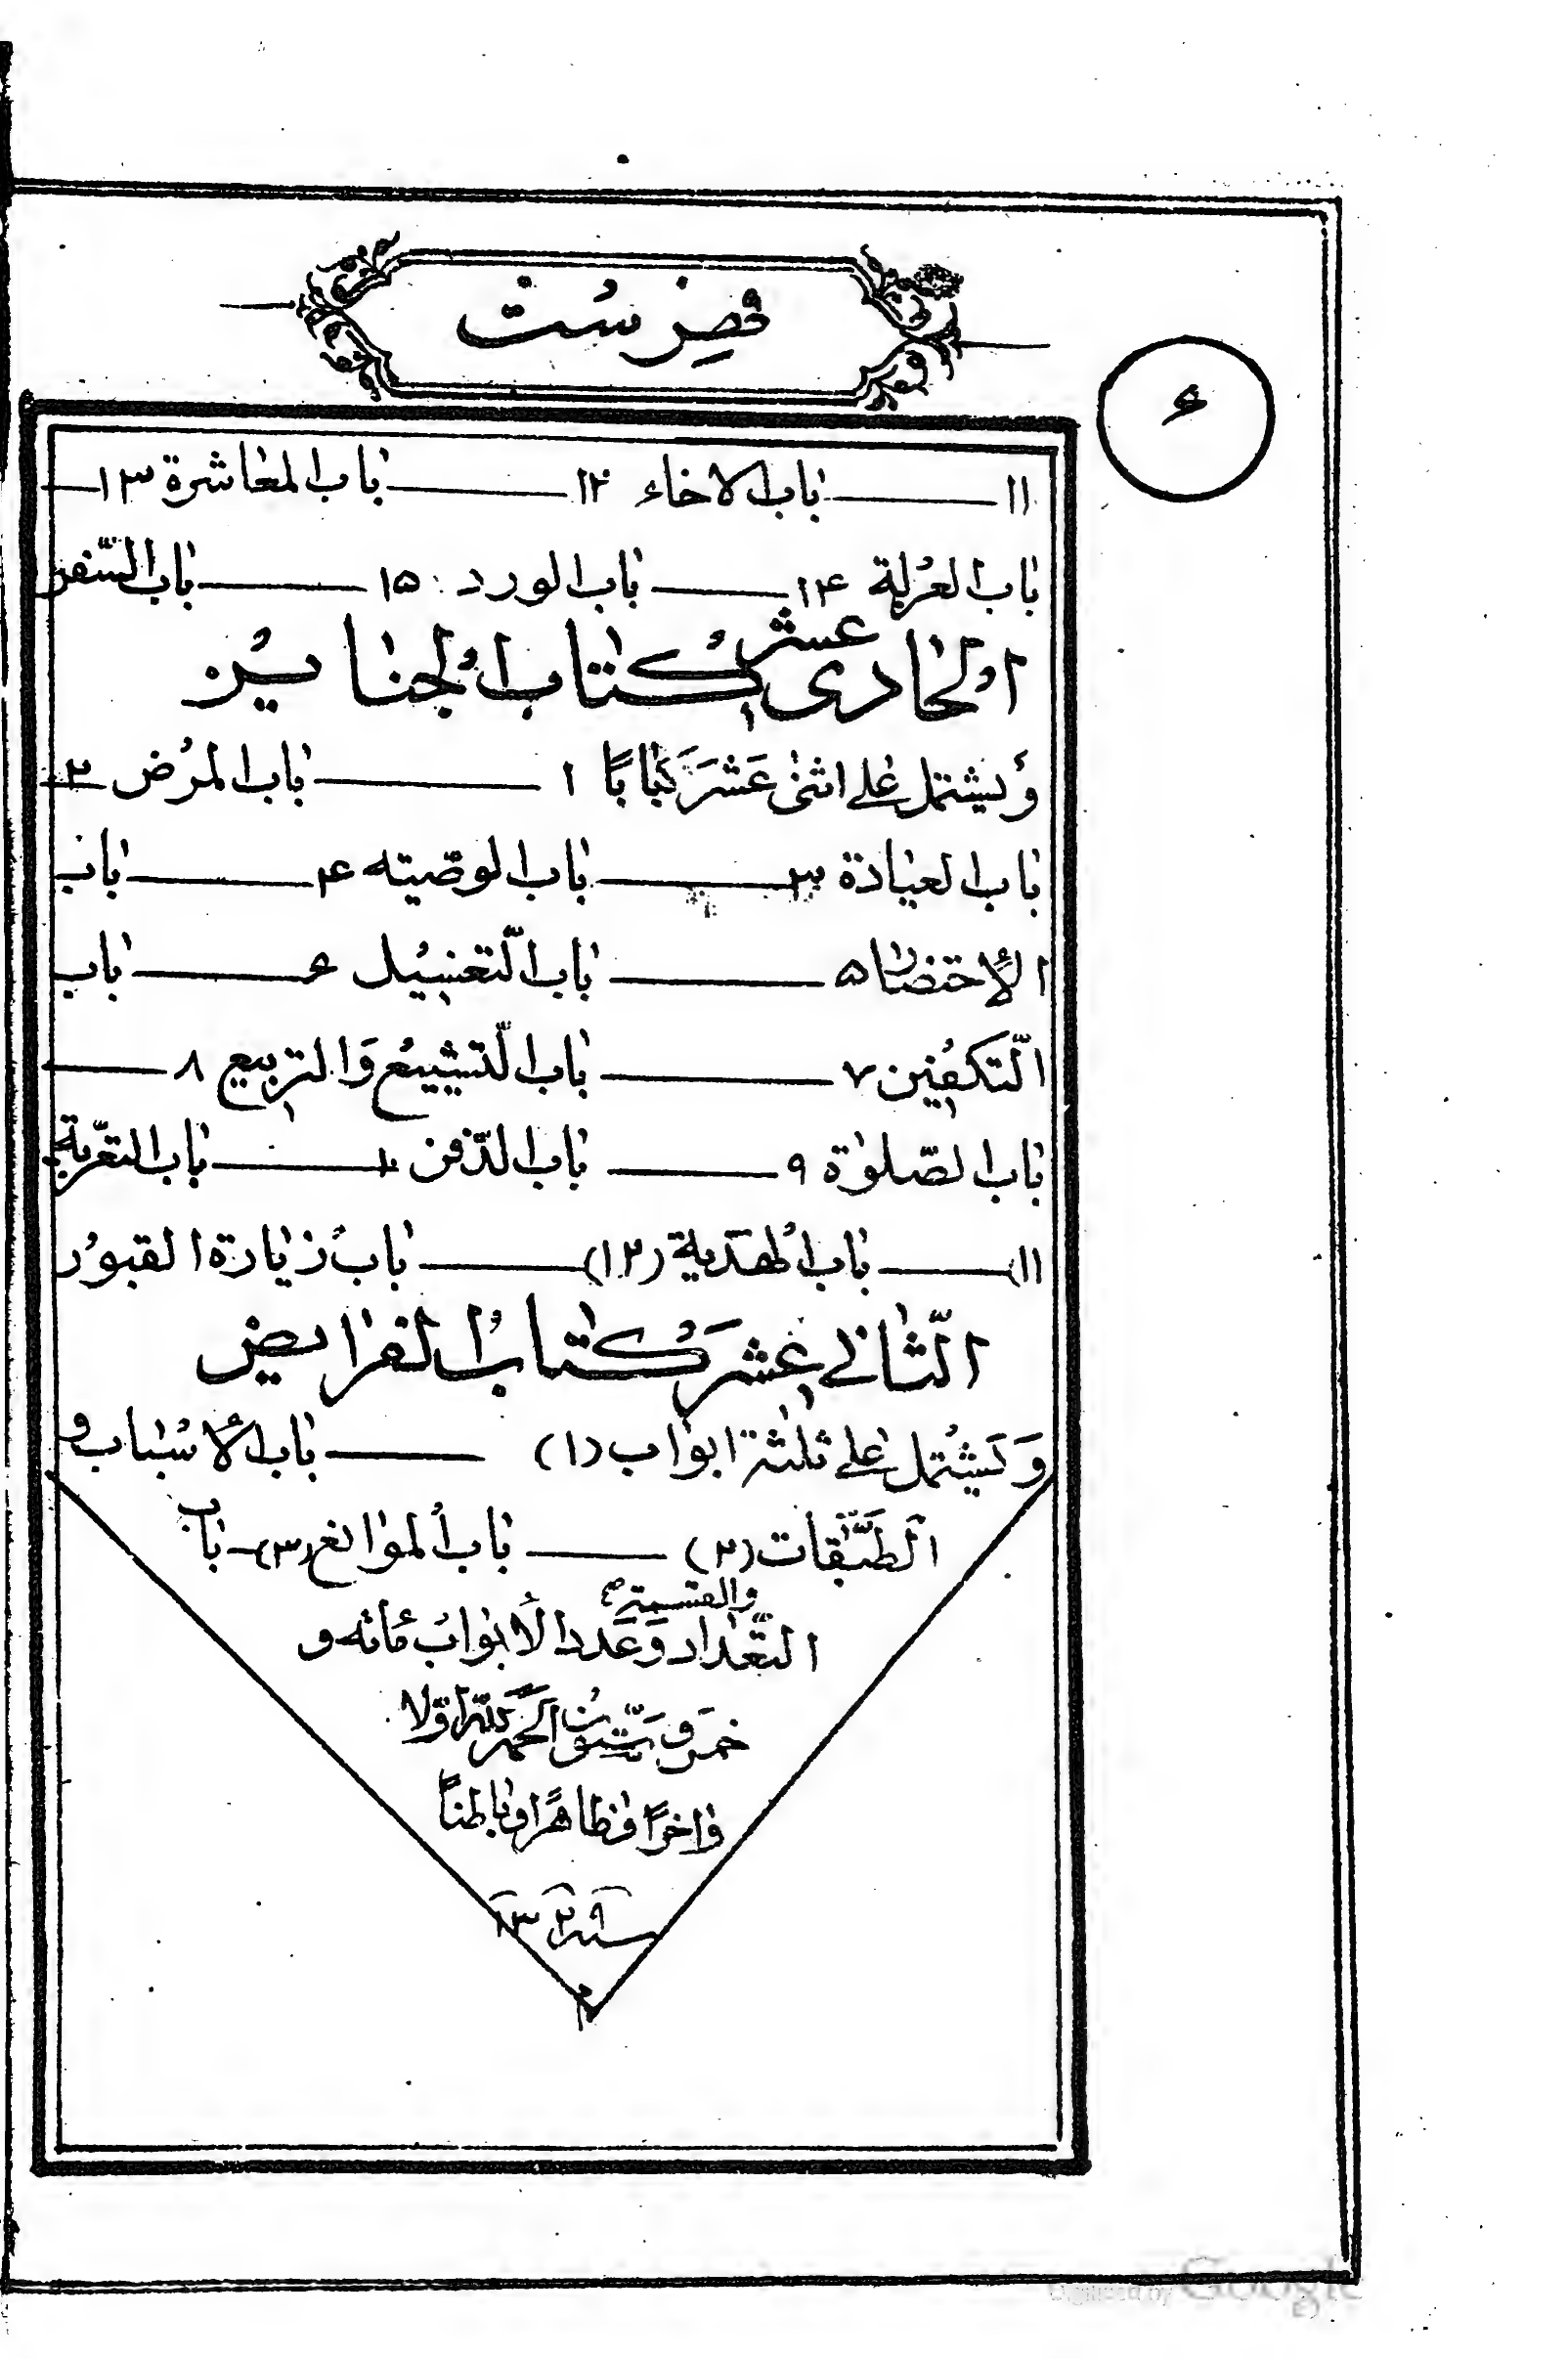 فهرست
۶
۱۱ باب الاخاء ۱۲ باب المعاشرة ۱۳
باب العزلة ۱۴ باب الورد ۱۵ باب السفر
الحادی عشر کتاب الجنایز
وَیشتمل علی اثنی عَشَرَ بَابًا ۱ باب المرض ۲
باب العیادة ۳ باب الوصّیته ۴ باب
الأحتضار ۵ باب التّغسیل ۶ باب
التّکفین ۷ باب التّشییع وَالتربیع ۸
باب الصّلوٰة ۹ باب الدّفن ۱۰ باب التعزیة
(۱۱ باب الهدیة (۱۲) باب زیارة القبور
الثّانی عشر کتاب الفرایض
وَیَشتمل علی ثلثة ابواب (۱) باب الأسباب و
الطّبقات (۲) باب الموانع (۳) باب
والقسمة
التّعداد وَعَدد الأبواب مائه و
خمس و ستّون الحمد للّه اوّلا
واخرًا وظاهرًا وباطنًا
سنه ۱۳۲۹
Digitized by Google